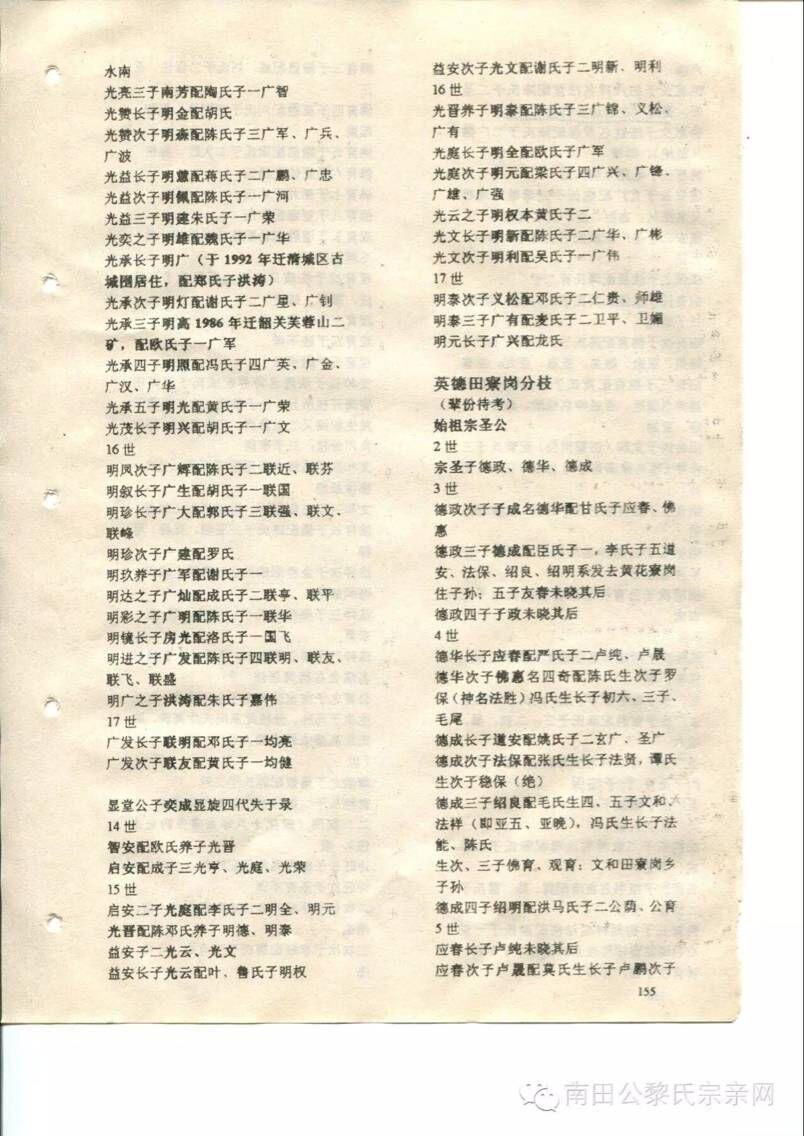 水南
光亮三子南芳配陶氏子一广智
光赞长子明金配胡氏
光赞次子明森配陈氏子三广军、广兵、
广波
光益长子明慧配蒋氏子二广鹏、广忠
光益次子明佩配陈氏子一广河
光益三子明建朱氏子一广荣
光奕之子明雄配魏氏子一广华
光承长子明广（于1992年迁清城区古
城圈居住，配郑氏子洪涛）
光承次子明灯配谢氏子二广星、广钊
光承三子明高1986年迁韶关芙蓉山二
矿，配欧氏子一广军
光承四子明照配冯氏子四广英、广金、
广汉、广华
光承五子明光配黄氏子一广荣
光茂长子明兴配胡氏子一广文
16世
明凤次子广辉配陈氏子二联近、联芬
明叙长子广生配胡氏子一联国
明珍长子广大配郭氏子三联强、联文、
联峰
明珍次子广建配罗氏
明玖养子广军配谢氏子一
明达之子广灿配成氏子二联亭、联平
明彩之子广明配陈氏子一联华
明镜长子房光配洛氏子一国飞
明进之子广发配陈氏子四联明、联友、
联飞、联盛
明广之子洪涛配朱氏子嘉伟
17世
广发长子联明配邓氏子一均亮
广发次子联友配黄氏子一均健
显堂公子奕成显旋四代失于录
14世
智安配欧氏养子光晋
启安配成子三光亨、光庭、光荣
15世
启安二子光庭配李氏子二明全、明元
光晋配陈邓氏养子明德、明泰
益安子二光云、光文
益安长子光云配叶、鲁氏子明权
益安次子光文配谢氏子二明新、明利
16世
光晋养子明泰配陈氏子三广锦、义松、
广有
光庭长子明全配欧氏子广军
光庭次子明元配梁氏子四广兴、广锋、
广雄、广强
光云之子明权本黄氏子二
光文长子明新配陈氏子二广华、广彬
光文次子明利配吴氏子一广伟
17世
明泰次子义松配邓氏子二仁贵、师雄
明泰三子广有配麦氏子二卫平、卫
明元长子广兴配龙氏
英德田寮岗分枝
（辈份待考）
始祖宗圣公
2世
宗圣子德政、德华、德成
3世
德政次子子成名德华配甘氏子应春、佛
惠
德政三子德成配臣氏子一，李氏子五道
安、法保、绍良、绍明系发去黄花寮岗
住子孙；五子友春未晓其后
德政四子子政未晓其后
4世
德华长子应春配严氏子二卢纯、卢晟
德华次子佛惠名四奇配陈氏生次子罗
保（神名法胜）冯氏生长子初六、三子、
毛尾
德成长子道安配姚氏子二玄广、圣广
德成次子法保配张氏生长子法贤，谭氏
生次子稳保（绝）
德成三子绍良配毛氏生四、五子文和、
法祥（即亚五、亚晚），冯氏生长子法
能、陈氏
生次、三子佛育、观育；文和田寮岗乡
子孙
德成四子绍明配洪马氏子二公荫、公育
5世
应春长子卢纯未晓其后
应春次子卢晟配莫氏生长子卢鹏次子
155
南田公黎氏宗亲网